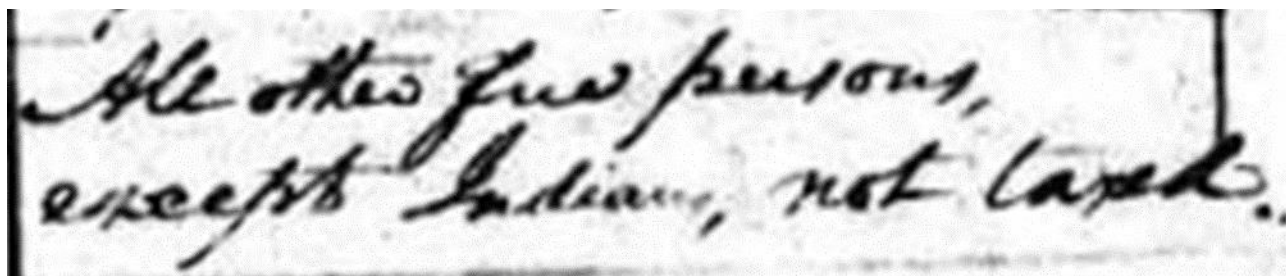 All other free persons,
except Indians, not taxed.